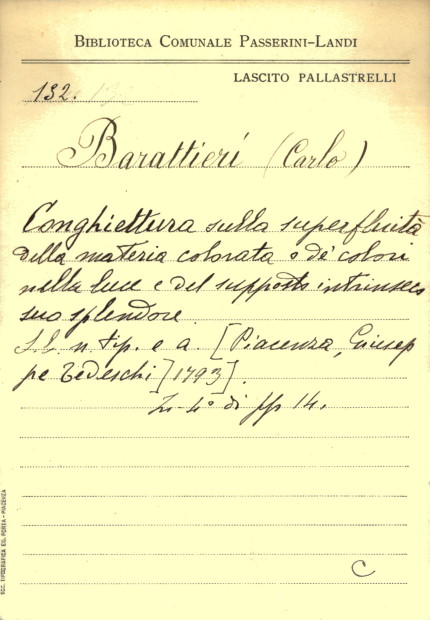 BIBLIOTECA COMUNALE PASSERINI-LANDI
LASCITO PALLASTRELLI
132.
Barattieri (Carlo)
Conghiettura sulla superfluità
della materia colorata o de' colori
nella luce e del supposto intrinseco
suo splendore.
S. l. n. tip. e a. [Piacenza, Giusep
pe Tedeschi] 1793].
In-4° di pp 14.
C
SOC. TIPOGRAFICA ED. PORTA - PIACENZA